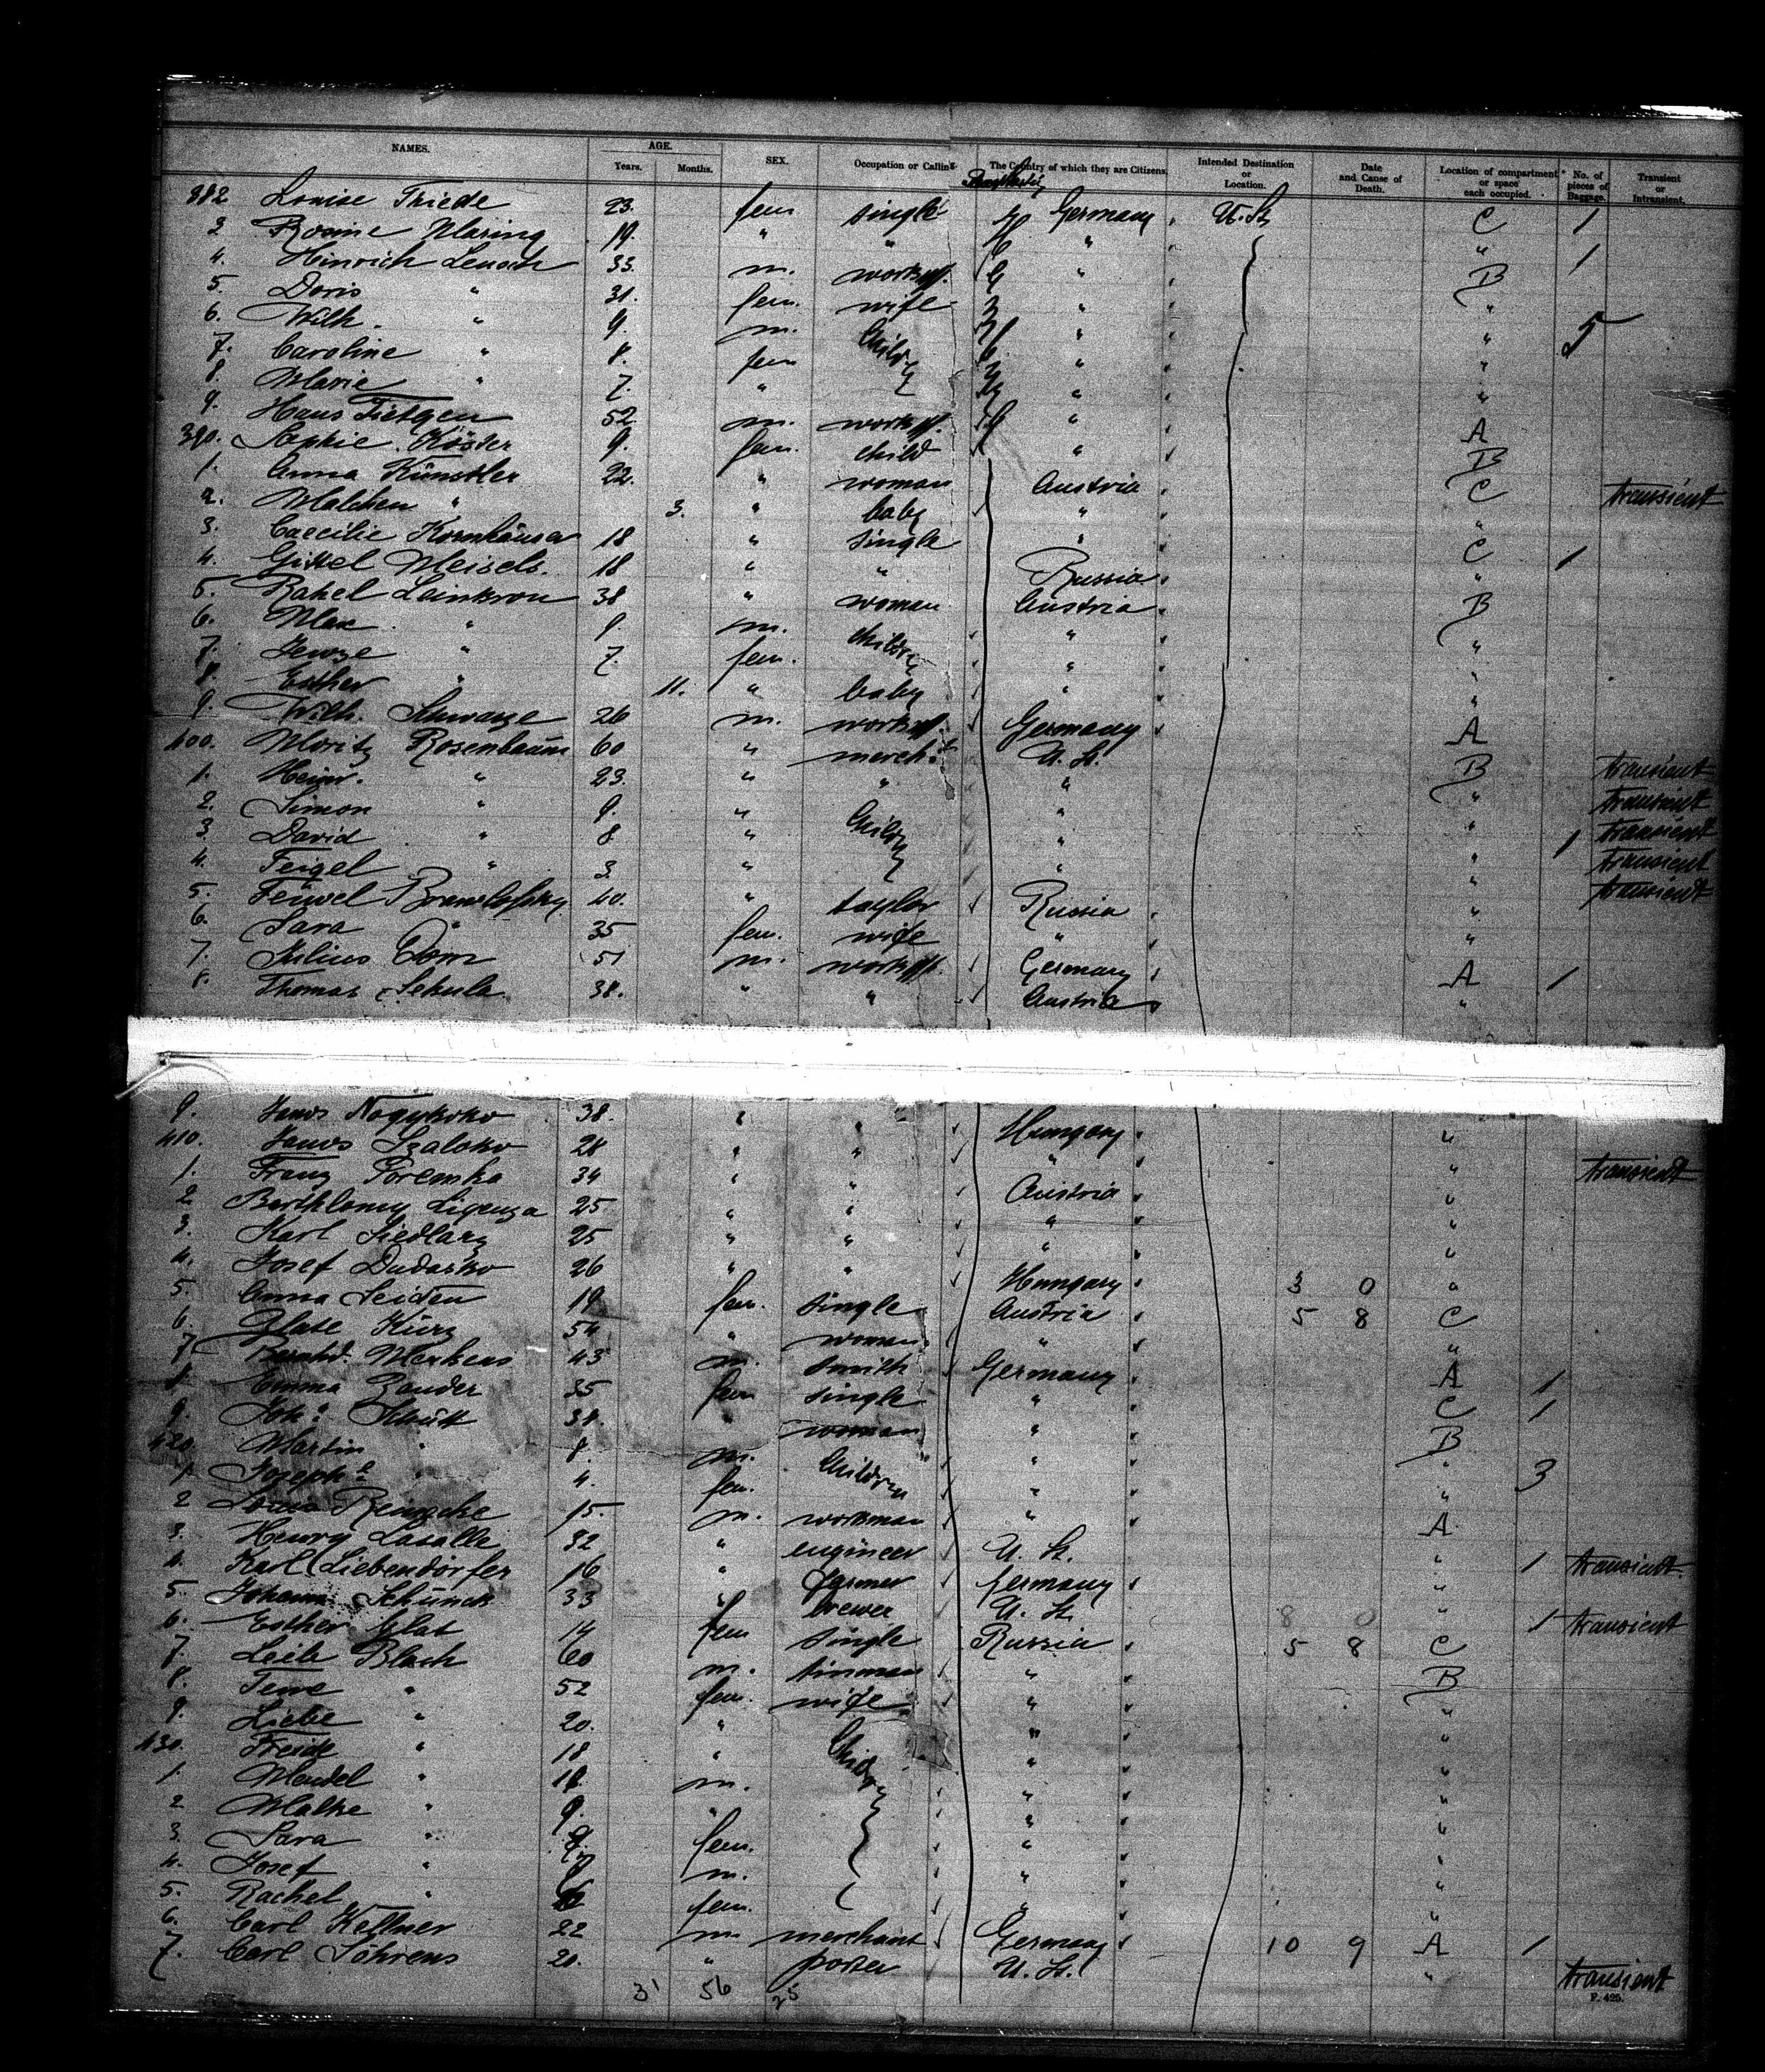 NAMES. AGE. Years. Months. SEX. Occupation or Calling The Country of which they are Citizens. Intended Destination or Location. Date and Cause of Death. Location of compartment or space each occupied. No. of pieces of Baggage. Transient or Intransient.
382 Louise Thiede 23. fem single Germany U. St. C 1
3. Rosine Maring 19. " " " " 1
4. Hinrich Lenoch 33. m. " B
5. Doris " 31. fem. wife " "
6. Wilh. " 9. m. " " 5
7. Caroline " 8. fem " "
8. Marie " 7. " " "
9. Hans Tietgen 52. m. " A
390. Sophie Köster 9. fem. child " B
1. Anna Künstler 22. " woman Austria C transient
2. Malchen " 3. " baby " "
3. Caecilie Kornhäuser 18 " single " C
4. Gittel Meisels. 18 " " Russia " 1
5. Rahel Leinkron 38 " woman Austria B
6. Max " 9. m. " "
7. " 7. fem. "
8. Esther " 11. " baby " "
9. Wilh. Schwarze 26 m. Germany A
400. Moritz Rosenbaum 60 " merch. U. St. B transient
1. Heinr. " 23. " " " " transient
2. Simon " 9. " " " transient
3. David " 8 " " " 1 transient
4. Feigel " 3. " " " transient
5. Feiwel 40. " taylor Russia "
6. Sara " 35 fem. wife " "
7. Julius Dorn 51 m. Germany A 1
8. Thomas Sekula 38. " " Austria "
9. Janos Nagykoko 38. " " Hungary "
410. Janos Szaloko 28 " " " " transient
1. Franz Poremka 34 " " Austria "
2 Barthlomy Ligenza 25 " " " "
3. Karl Siedlarz 25 " " " "
4. Josef Dudasko 26 " " Hungary 3 0 "
5. Anna Seiden 19 fem. single Austria 5 8 C
6. Kurz 54 " woman " "
7 Merkens 43 m. smith Germany A 1
8. Emma Zander 35 fem single " C 1
9. Joh.a Schütt 38. woman " B
420 Martin " 8. m. Children " " 3
1. Joseph.e " 4. fem. " "
2 Reinecke 15. m. workman " A
3. Henry Lasalle 32 " engineer U. St. " 1 transient.
4. Karl Liebendörfer 16 " farmer Germany "
5. Johann Schunck 33 " brewer U. St. 8 0 " 1 transient
6. Esther Glat 14 fem single Russia 5 8 C
7. Leib Blach 60 m. tinman " B
8. 52 fem. wife " "
9. Liebe " 20. " " "
430. Freide " 18 " " "
1. Mendel " m. " "
2 Malke " 9. " " "
3. Sara " fem. " "
4. Josef " m. " "
5. Rachel " fem. " "
6. Carl Kettner 22 m. merchant Germany 10 9 A 1
7. Carl Söhrens 20. " porter U. St. " transient
31 56 25 F. 425.